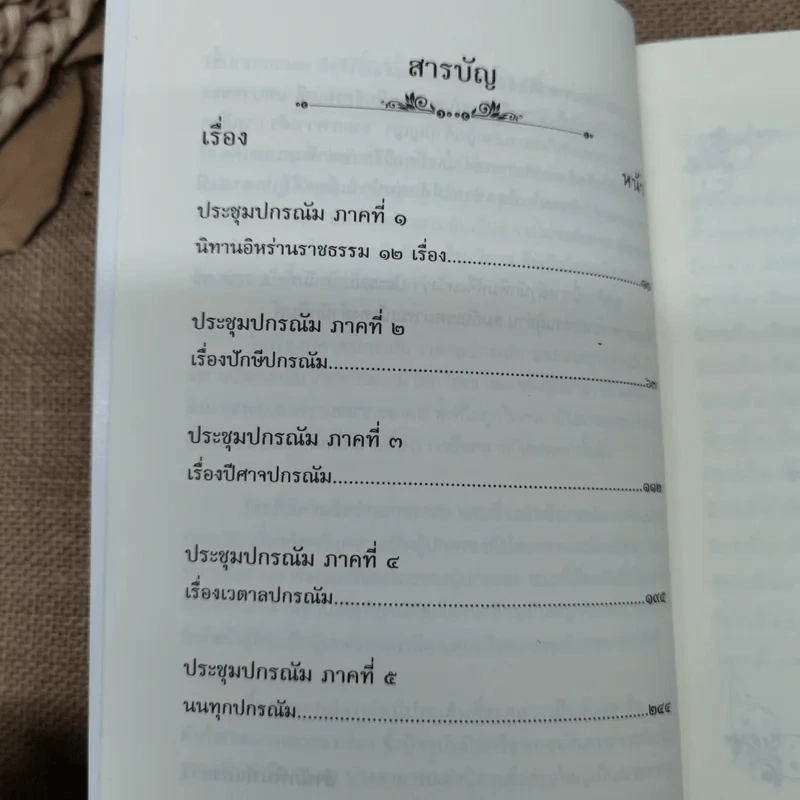 สารบัญ
เรื่อง
หน้า
ประชุมปกรณัม ภาคที่ ๑
นิทานอิหร่านราชธรรม ๑๒ เรื่อง
ประชุมปกรณัม ภาคที่ ๒
เรื่องปักษีปกรณัม
ประชุมปกรณัม ภาคที่ ๓
เรื่องปีศาจปกรณัม....................๑๑๒
ประชุมปกรณัม ภาคที่ ๔
เรื่องเวตาลปกรณัม....................๑๙๕
ประชุมปกรณัม ภาคที่ ๕
นนทุกปกรณัม....................๒๔๔